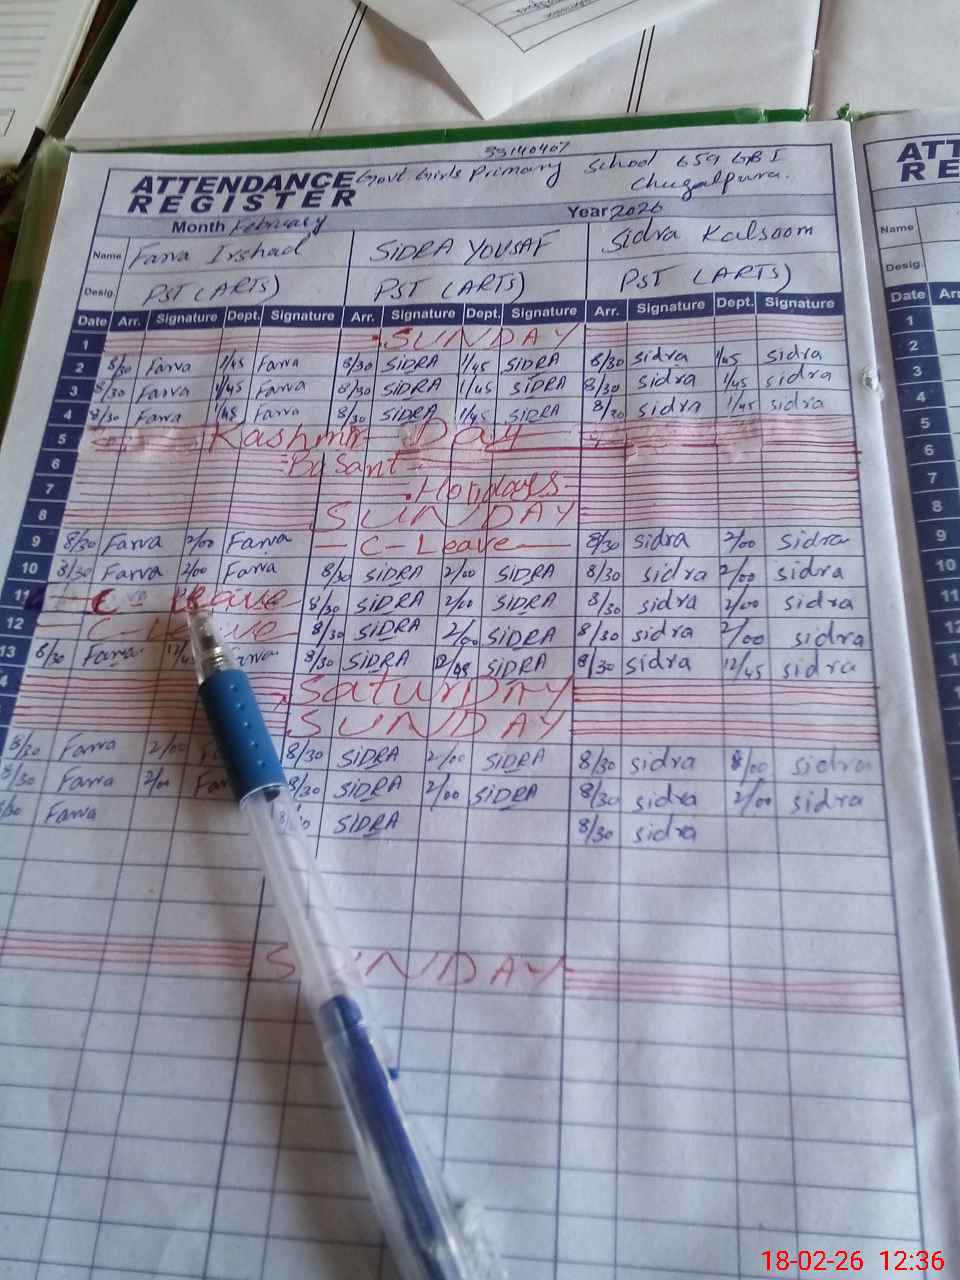 33140407
ATTENDANCE REGISTER Govt. Girls Primary School 659 GB I
Chugalpura.
Month February Year 2026
Name Farva Irshad SiDRA YOUSAF Sidra Kalsoom
Desig. PST (ARTS) PST (ARTS) PST (ARTS)
Date Arr. Signature Dept. Signature Arr. Signature Dept. Signature Arr. Signature Dept. Signature
1 SUNDAY
2 8/30 Farva 1/45 Farva 8/30 SiDRA 1/45 SiDRA 8/30 sidra 1/45 sidra
3 8/30 Farva 1/45 Farva 8/30 SiDRA 1/45 SiDRA 8/30 sidra 1/45 sidra
4 8/30 Farva 1/45 Farva 8/30 SiDRA 1/45 SiDRA 8/30 sidra 1/45 sidra
5 Kashmir Day
6 Basant
7 Holidays
8 SUNDAY
9 8/30 Farva 2/00 Farva C-Leave 8/30 sidra 2/00 sidra
10 8/30 Farva 2/00 Farva 8/30 SiDRA 2/00 SiDRA 8/30 sidra 2/00 sidra
11 C-Leave 8/30 SiDRA 2/00 SiDRA 8/30 sidra 2/00 sidra
12 C-Leave 8/30 SiDRA 2/00 SiDRA 8/30 sidra 2/00 sidra
13 8/30 Farva 12/45 Farva 8/30 SiDRA 12/45 SiDRA 8/30 sidra 12/45 sidra
SATURDAY
SUNDAY
8/30 Farva 2/00 8/30 SiDRA 2/00 SiDRA 8/30 sidra 8/00 sidra
8/30 Farva 2/00 8/30 SiDRA 2/00 SiDRA 8/30 sidra 2/00 sidra
8/30 Farva SiDRA 8/30 sidra
SUNDAY
Name
Desig.
Date
1
2
3
4
5
6
7
8
9
10
11
18-02-26 12:36